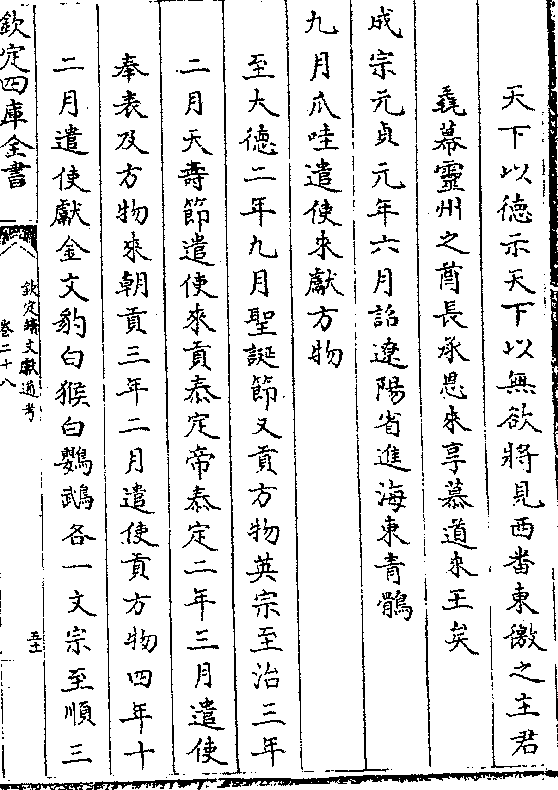 天下以德示天下以無欲將見西畨東徼之主君
毳幕靈州之酋長承恩來享慕道來王矣
成宗元貞元年六月詔遼陽省進海東青鶻
九月爪哇遣使來獻方物
至大德二年九月聖誕節又貢方物英宗至治三年
二月天壽節遣使來貢泰定帝泰定二年三月遣使
奉表及方物來朝貢三年二月遣使貢方物四年十
二月遣使獻金文豹白猴白鸚鵡各一文宗至順三
欽定四庫全書
欽定續文獻通考
卷二十八
五十